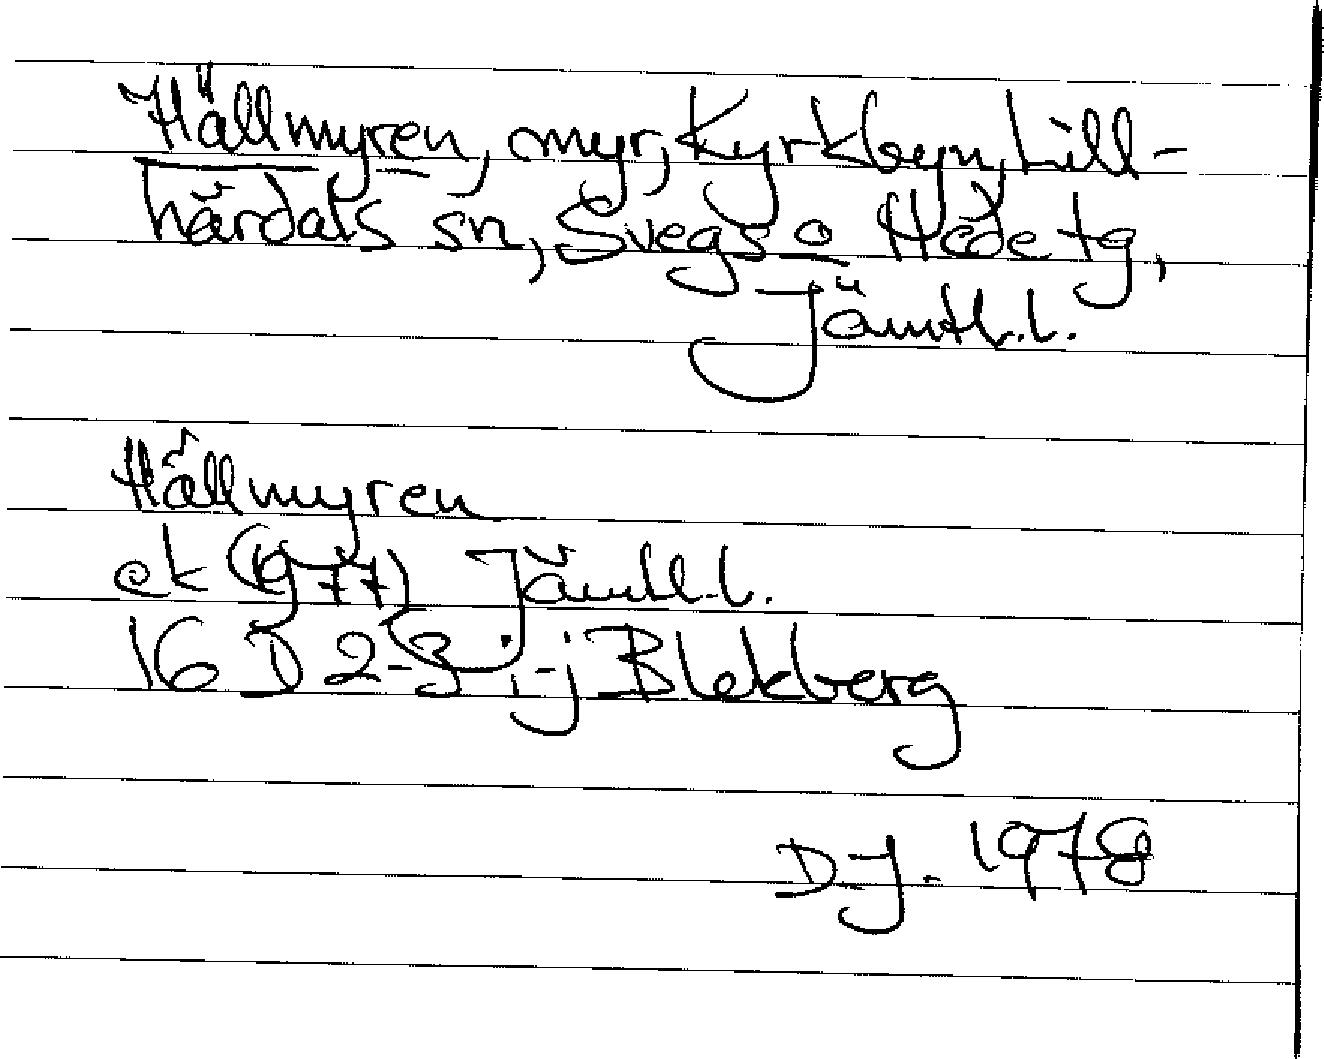 Hällmyren, myr, Kyrkbyn, Lill-
härdals sn, Svegs o Hede tg,
Jämtl.l.
Hällmyren
ek (1977) Jämtl.l.
16 D 2-3 i-j Blekberg
D.J. 1978